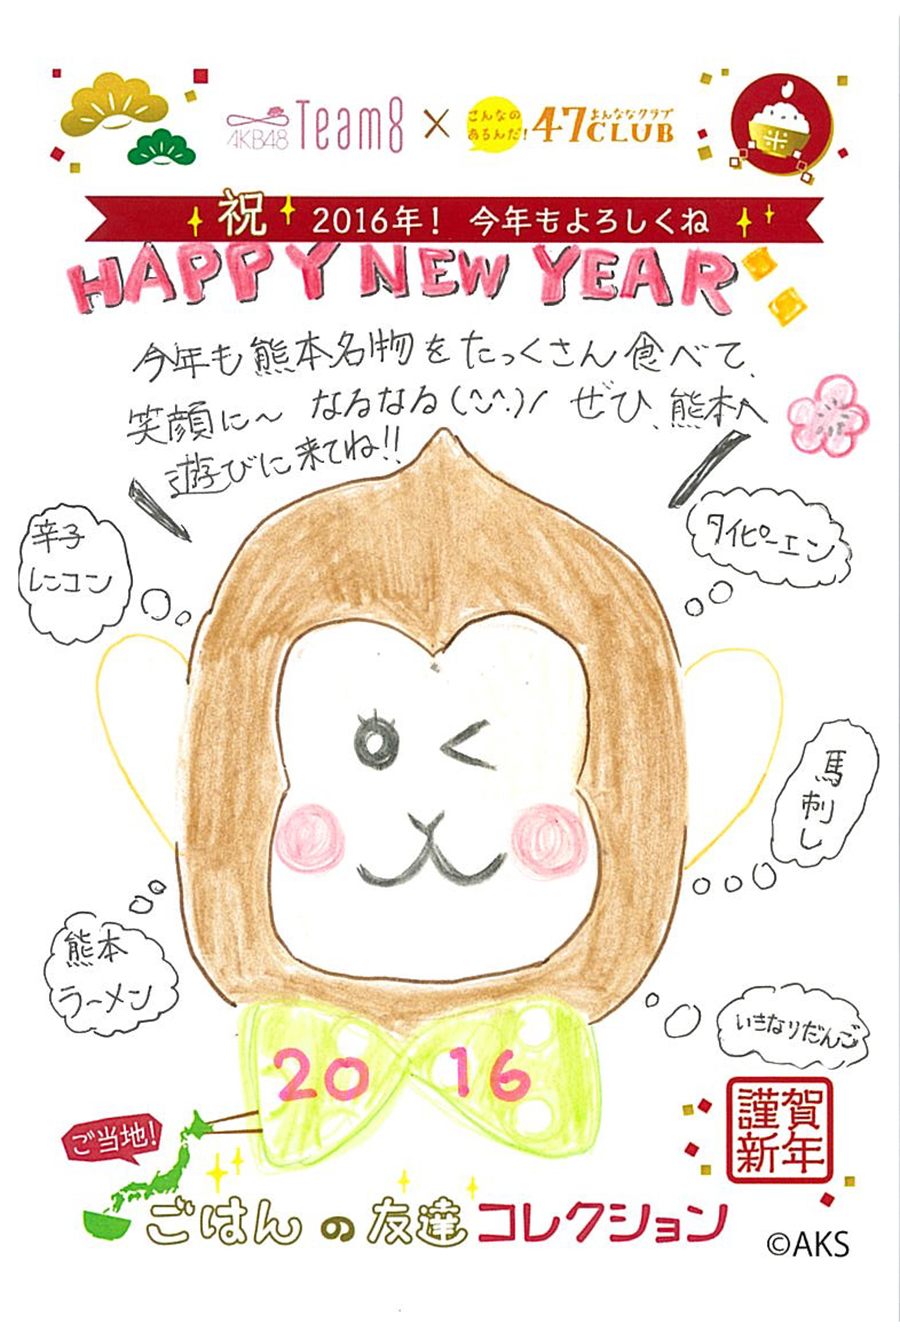 AKB48 Team8 × こんなの あるんだ! 47CLUB よんななクラブ
米
祝 2016年! 今年もよろしくね
HAPPY NEW YEAR
今年も熊本名物をたっくさん食べて、
笑顔に〜 なるなる(^◡^.)ノ ぜひ、熊本へ
遊びに来てね!!
辛子
レンコン
タイピーエン
馬刺し
熊本
ラーメン
いきなりだんご
2016
謹賀
新年
ご当地!
ごはんの友達コレクション
©AKS